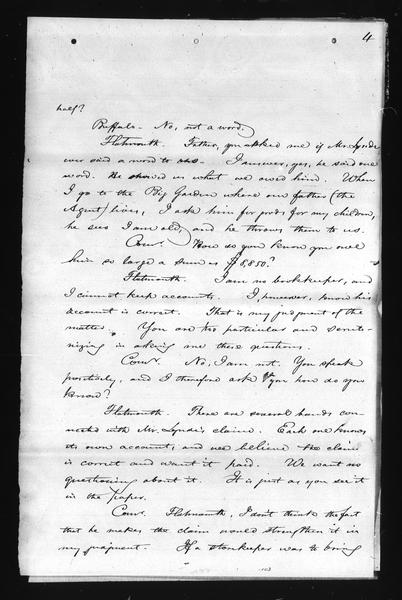 4
half?
Buffalo - No, not a word.
Flatmouth. Father, you asked me if Mr. Lynde
ever said a word to us - I answer, yes, he said one
word. He showed us what we owed him. When
I go to the Big Garden where our father (the
Agent) lives, I ask him for goods for my children,
he sees I am old, and he throws them to us.
Comr. How do you know you owe
him so large a sum as $5,850?
Flatmouth. I am no bookkeeper, and
I cannot keep accounts. I, however, know his
account is correct. That is my judgment of the
matter. You are too particular and scruti-
nizing in asking me these questions.
Comr. No, I am not. You speak
positively, and I therefore ask you how do you
know?
Flatmouth. There are several bands con-
nected with Mr. Lynde's claim. Each one knows
its own account, and we believe the claim
is correct and want it paid. We want no
questioning about it. It is just as you see it
in the paper.
Comr. Flatmouth, I don't think the fact
that he makes the claim would strengthen it in
my judgment. If a storekeeper was to bring